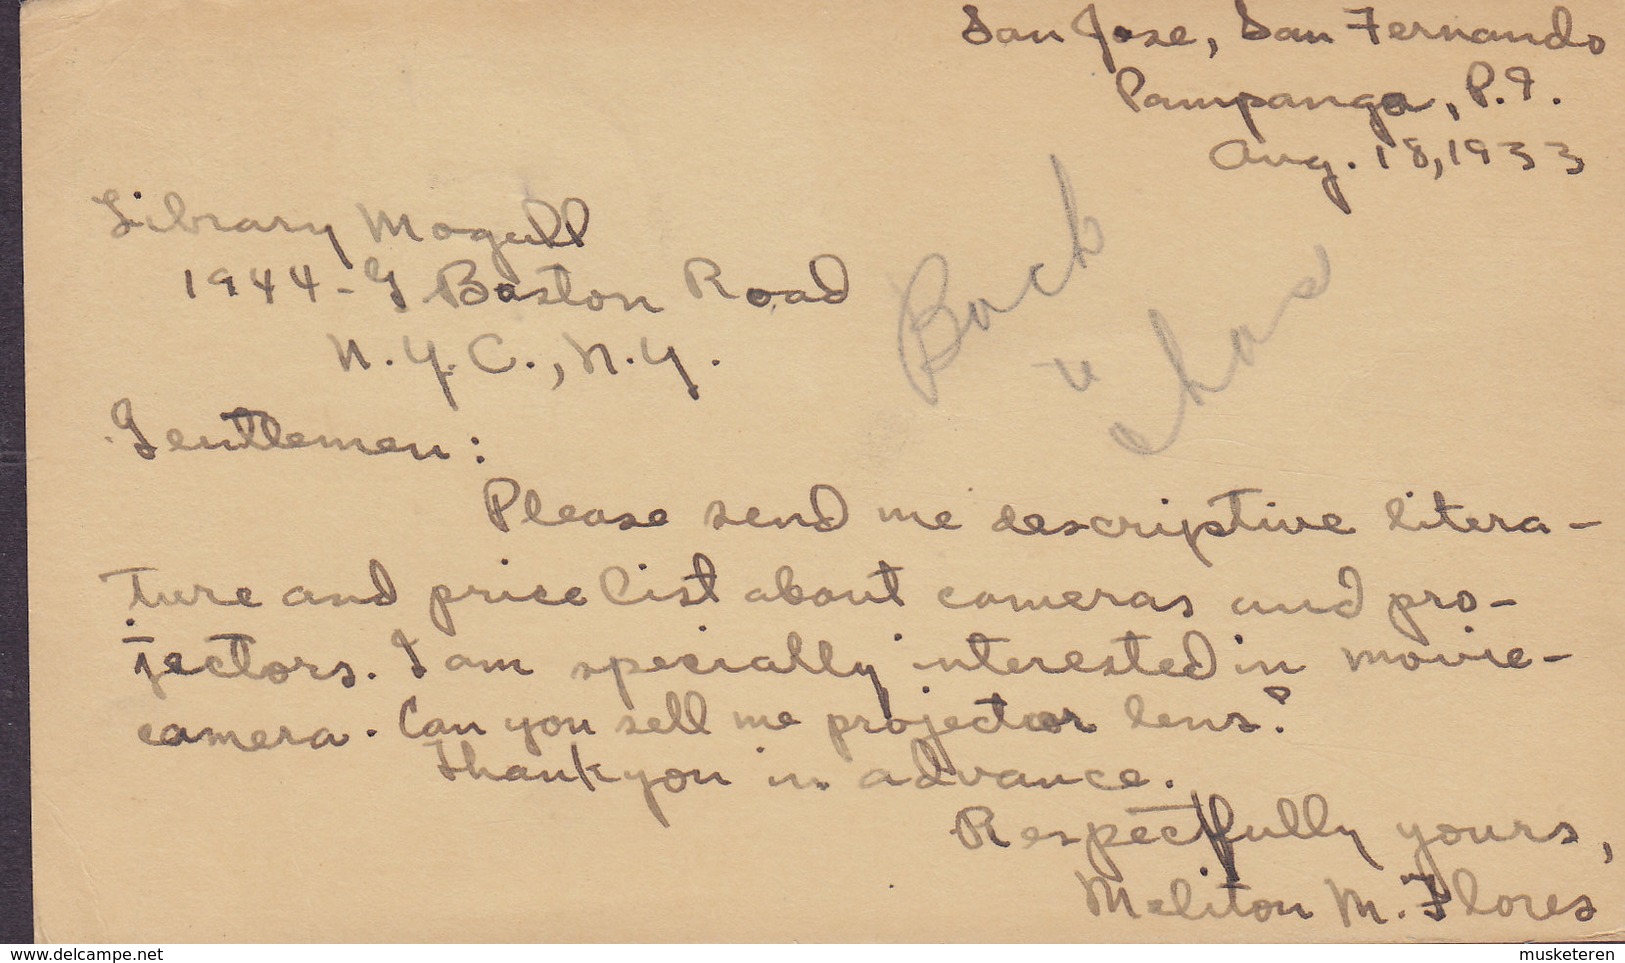 San Jose, San Fernando
Pampanga, P.I.
Aug. 18, 1933
Library Mogull
1944-G Boston Road
N.Y.C., N.Y.
Back
Chas
Gentlemen:
Please send me descriptive litera-
ture and price list about cameras and pro-
jectors. I am specially interested in movie-
camera. Can you sell me projector lens?
Thank you in advance.
Respectfully yours,
Meliton M. Flores
delcampe.net
musketeren